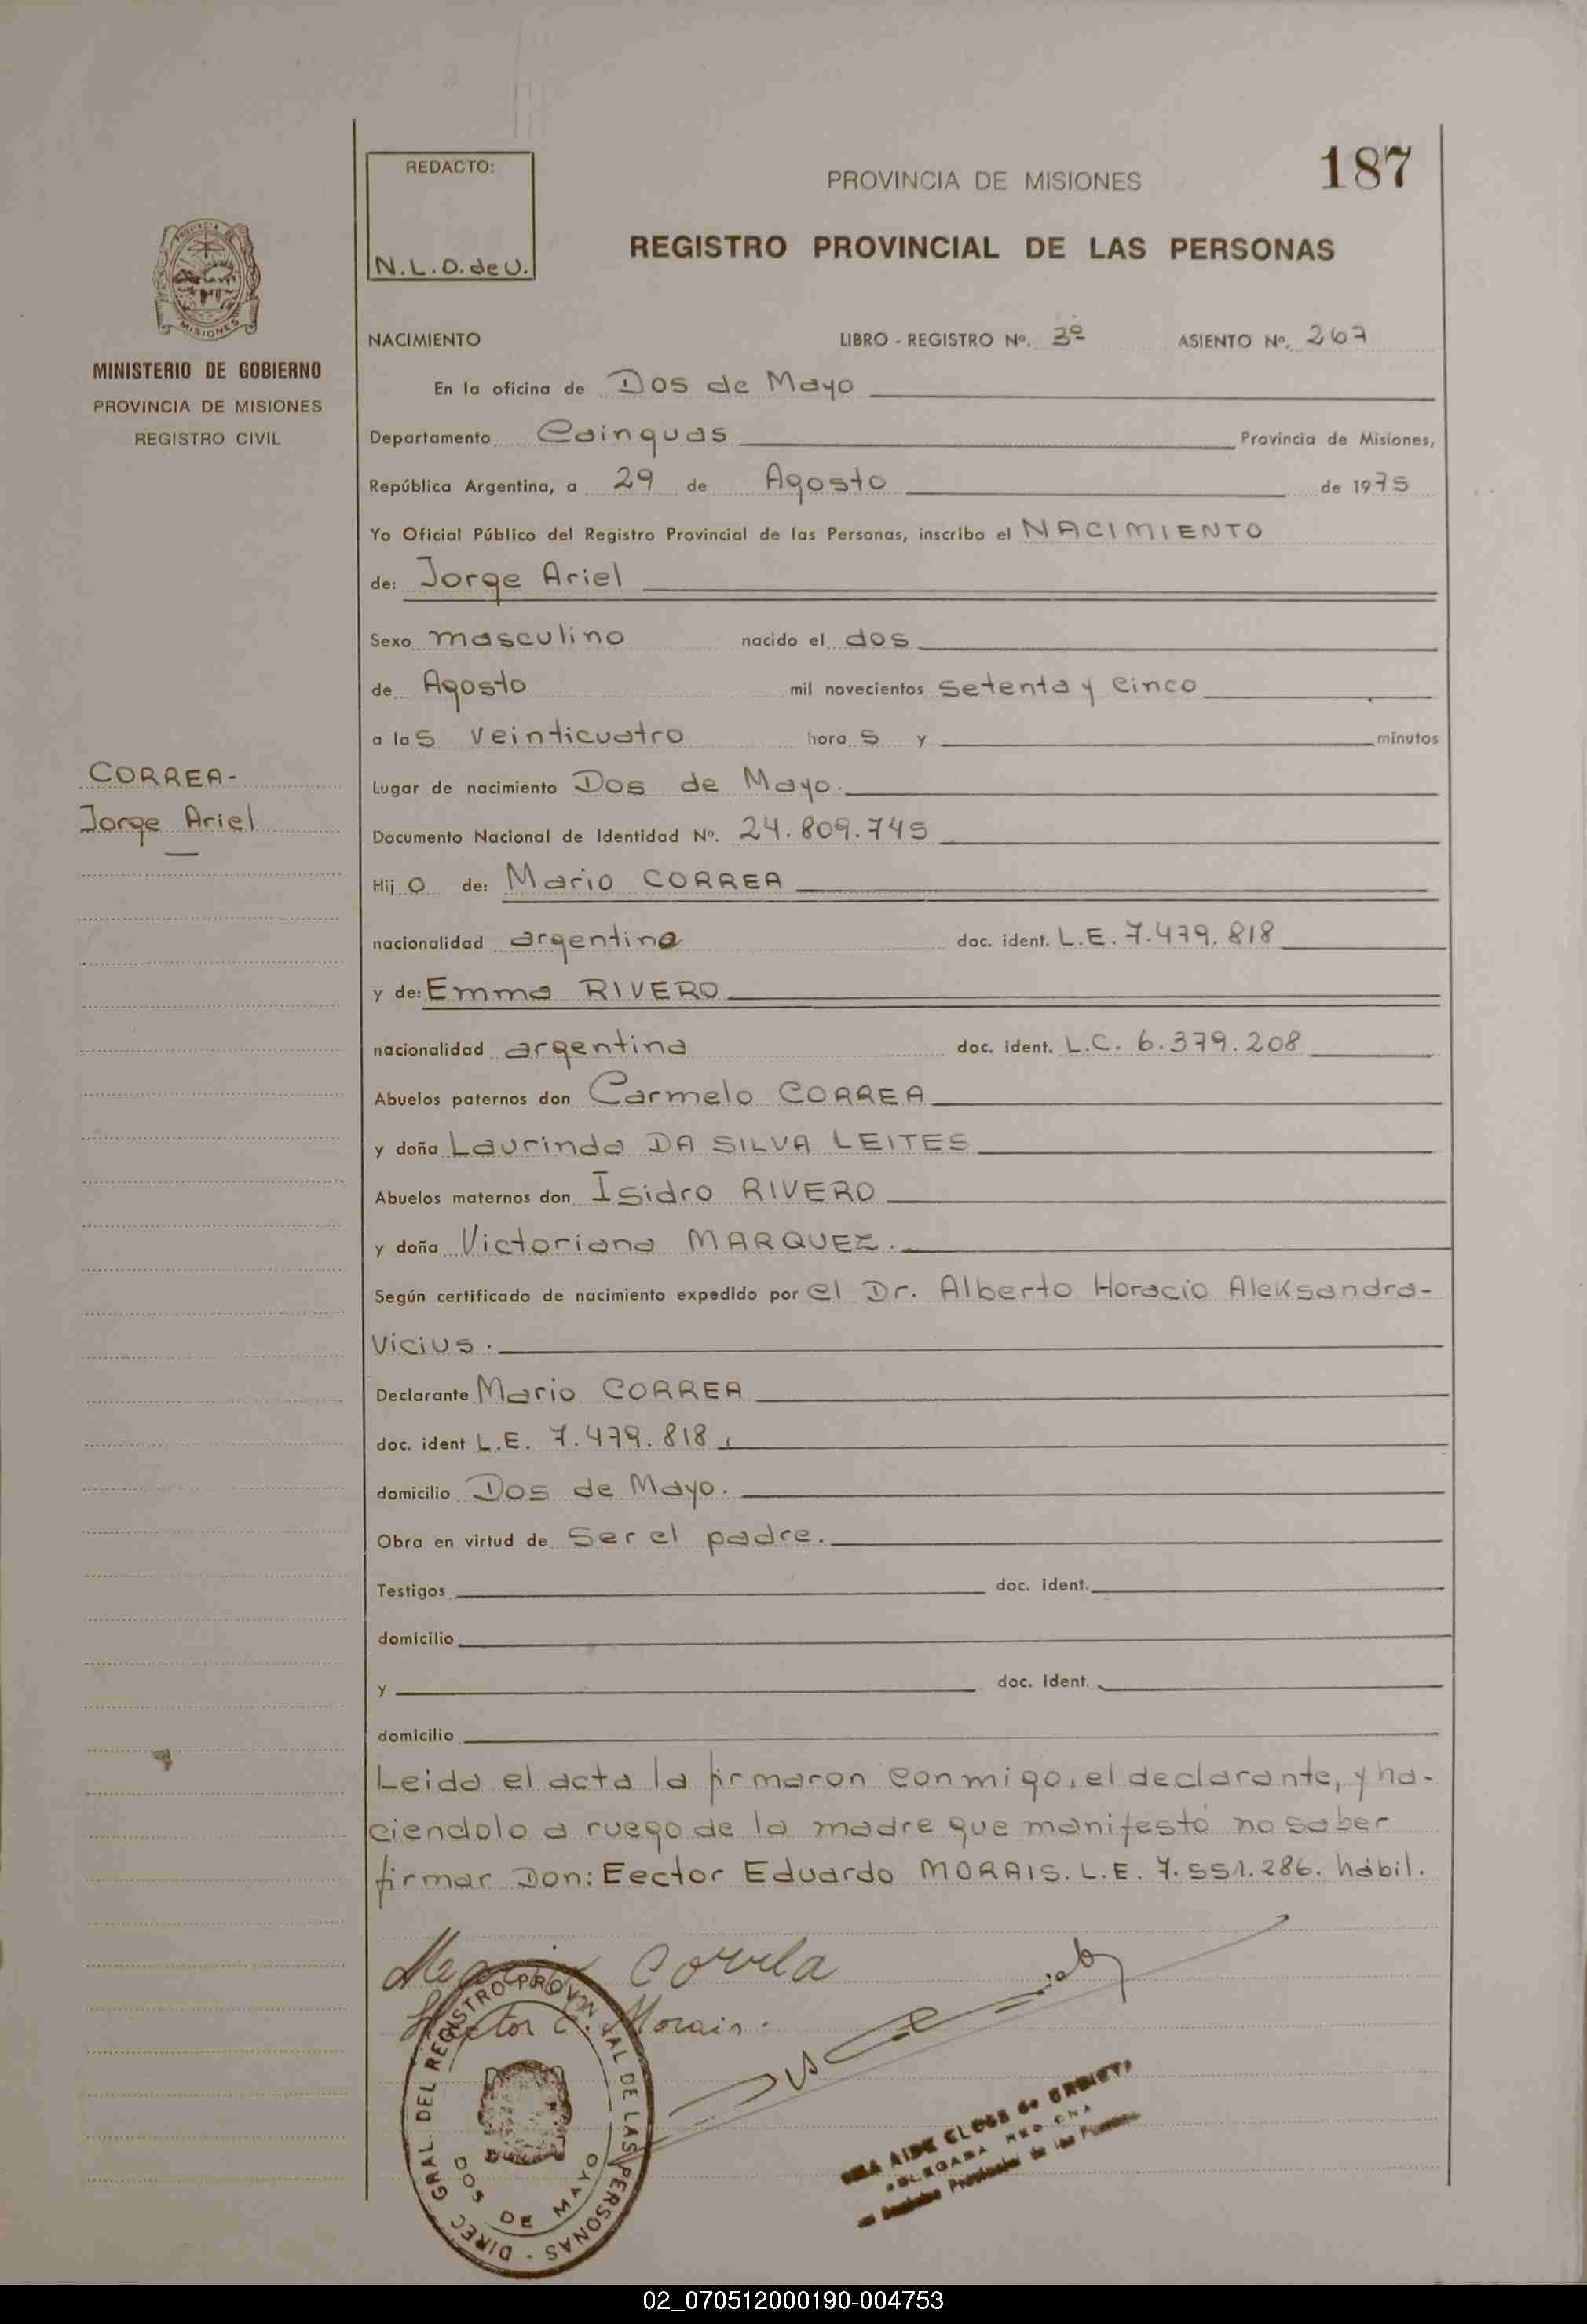 187
REDACTO:
N.L.D. de U.
PROVINCIA DE MISIONES
REGISTRO PROVINCIAL DE LAS PERSONAS
PROVINCIA DE
MISIONES
MINISTERIO DE GOBIERNO
PROVINCIA DE MISIONES
REGISTRO CIVIL
NACIMIENTO LIBRO - REGISTRO Nº. 3º ASIENTO Nº. 267
En la oficina de Dos de Mayo
Departamento Cainguas Provincia de Misiones,
República Argentina, a 29 de Agosto de 1975
Yo Oficial Público del Registro Provincial de las Personas, inscribo el NACIMIENTO
de: Jorge Ariel
Sexo masculino nacido el dos
de Agosto mil novecientos setenta y cinco
a las veinticuatro horas y minutos
CORREA-
Jorge Ariel
Lugar de nacimiento Dos de Mayo.
Documento Nacional de Identidad Nº. 24.809.745
Hijo de: Mario CORREA
nacionalidad argentina doc. ident. L.E. 7.479.818
y de: Emma RIVERO
nacionalidad argentina doc. ident. L.C. 6.379.208
Abuelos paternos don Carmelo CORREA
y doña Laurinda DA SILVA LEITES
Abuelos maternos don Isidro RIVERO
y doña Victoriana MARQUEZ.
Según certificado de nacimiento expedido por el Dr. Alberto Horacio Aleksandra-
vicius.
Declarante Mario CORREA
doc. ident L.E. 7.479.818,
domicilio Dos de Mayo.
Obra en virtud de ser el padre.
Testigos doc. ident.
domicilio
y doc. Ident.
domicilio
Leida el acta la firmaron conmigo, el declarante, y ha-
ciendolo a ruego de la madre que manifestó no saber
firmar Don: Eector Eduardo MORAIS. L.E. 7.551.286. hábil.
Correa
Hector E. Morais.
DIREC. GRAL. DEL REGISTRO PROVINCIAL DE LAS PERSONAS -
DOS DE MAYO
AIDE GLOSS de
DELEGADA
Registro Provincial de las Personas
02_070512000190-004753